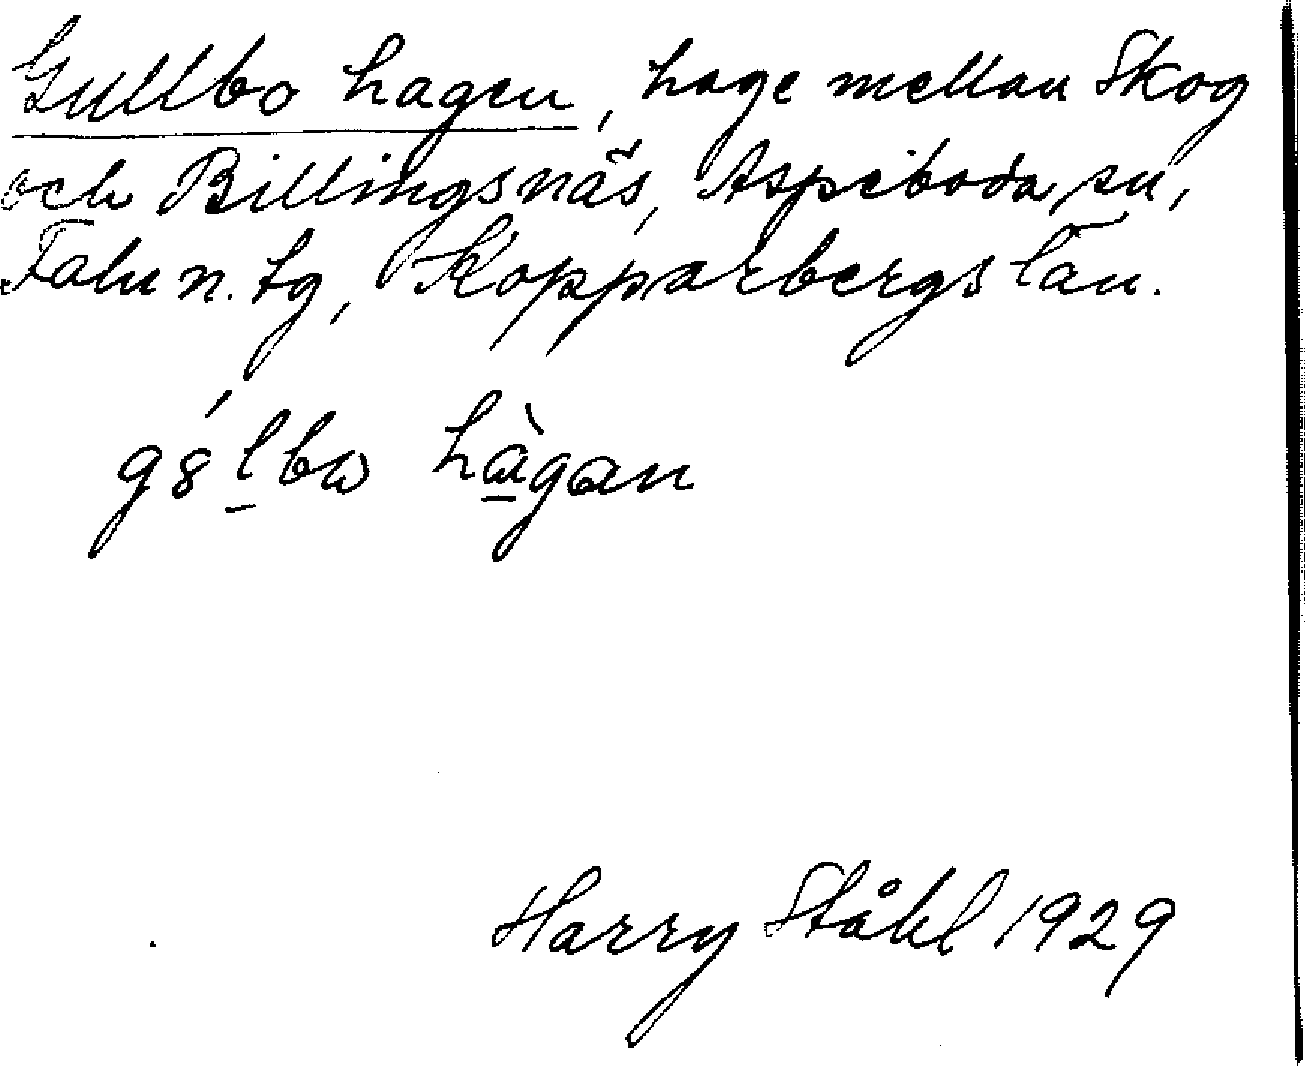 Gullbo hagen, hage mellan Skog
och Billingsnäs, Aspeboda sn,
Falu n. tg, Kopparbergs län.
gs̍lbω hàgan
Harry Ståhl 1929